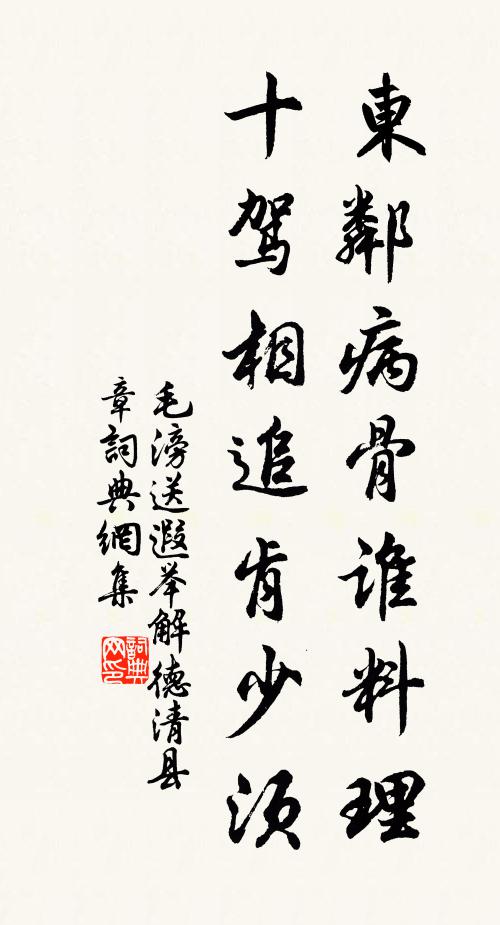 東鄰病骨谁料理
十驾相追肯少须
毛滂送遐举解德清县
章詞典網集
詞典网印